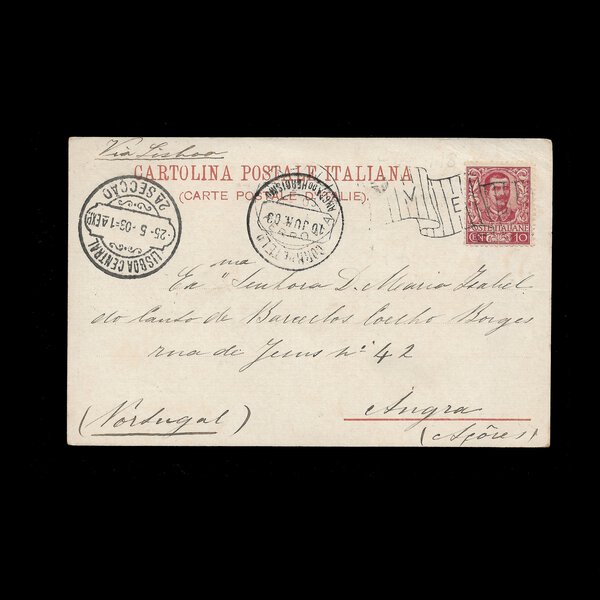 Via Lisboa
CARTOLINA POSTALE ITALIANA
(CARTE POSTALE D'ITALIE).
LISBOA CENTRAL
25-5-03-1
A SECÇÃO
CORRº E TELº
10 JUN.03
ANGRA DO HEROISMO
M E
POSTE ITALIANE
CEN. 10
Exma Senhora D. Maria Izabel
do Canto de Barcelos Coelho Borges
rua de Jesus nº 42
Angra
(Portugal)
(Açôres)